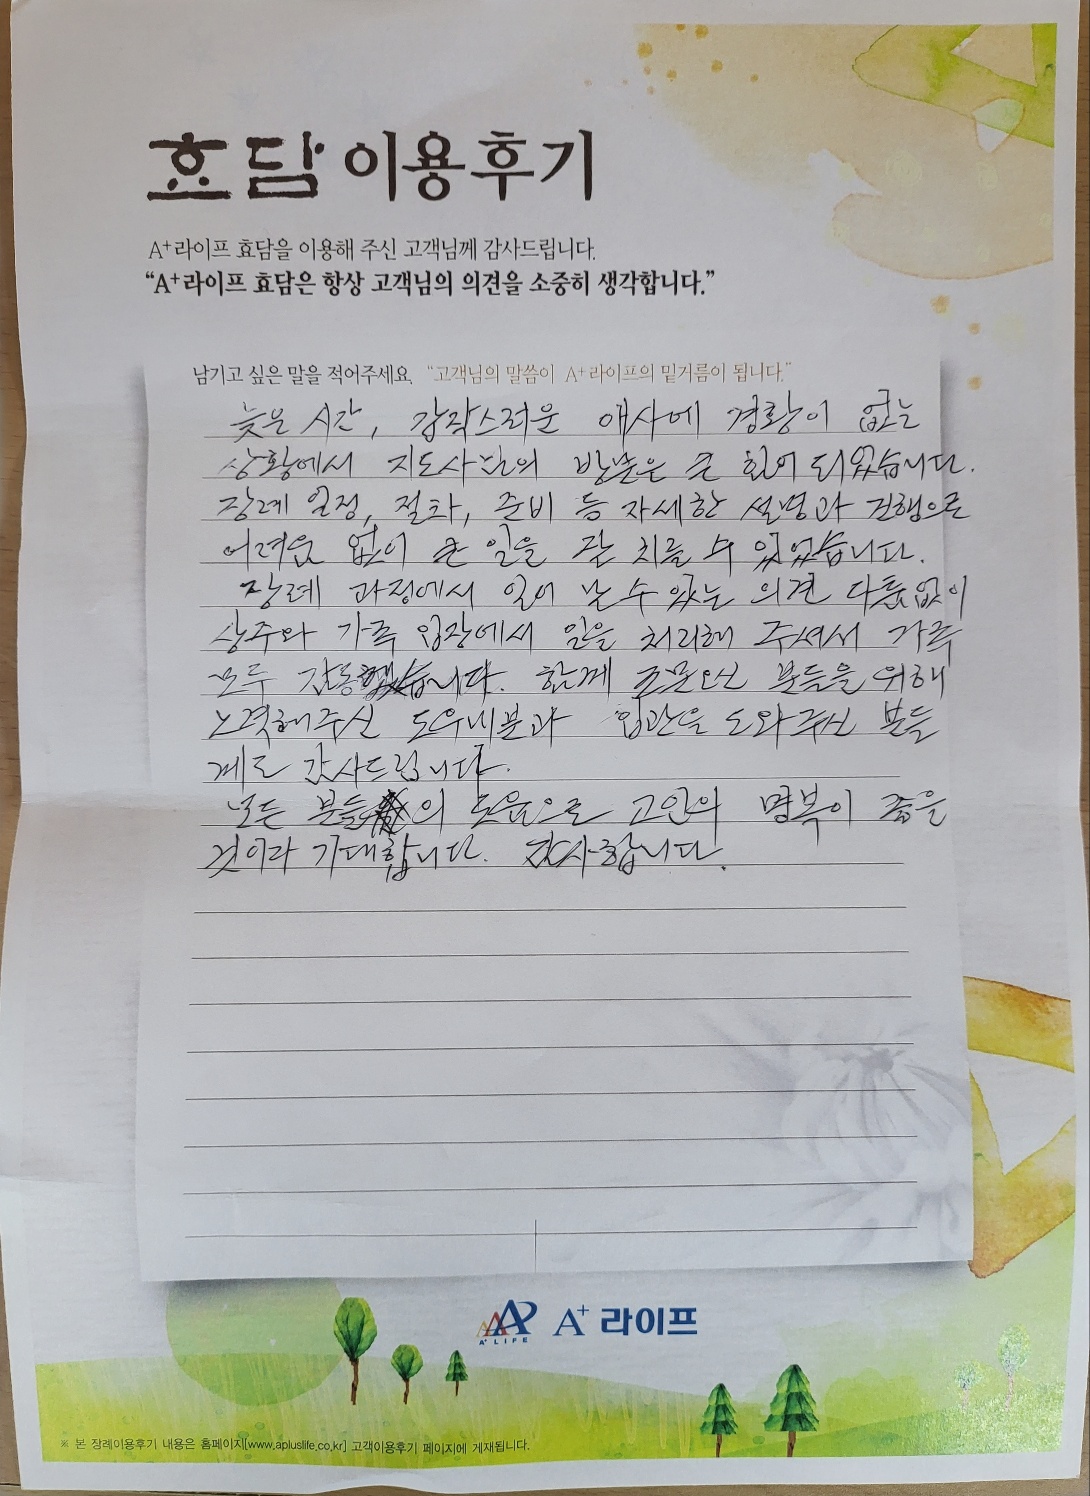 효담 이용후기
A⁺라이프 효담을 이용해 주신 고객님께 감사드립니다.
“A⁺라이프 효담은 항상 고객님의 의견을 소중히 생각합니다.”
남기고 싶은 말을 적어주세요. “고객님의 말씀이 A⁺라이프의 밑거름이 됩니다.”
늦은 시간, 갑작스러운 애사에 경황이 없는
상황에서 지도사님의 방문은 큰 힘이 되었습니다.
장례 일정, 절차, 준비 등 자세한 설명과 진행으로
어려움 없이 큰 일을 잘 치를 수 있었습니다.
장례 과정에서 일어 날 수 있는 의견 다툼없이
상주와 가족 입장에서 일을 처리해 주셔서 가족
모두 감동했습니다. 함께 조문오신 분들을 위해
노력해주신 도우미분과 입관을 도와주신 분들
께도 감사드립니다.
모든 분들의 도움으로 고인의 명복이 좋을
것이라 기대합니다. 감사합니다.
A⁺ LIFE A⁺ 라이프
※ 본 장례이용후기 내용은 홈페이지[www.apluslife.co.kr] 고객이용후기 페이지에 게재됩니다.